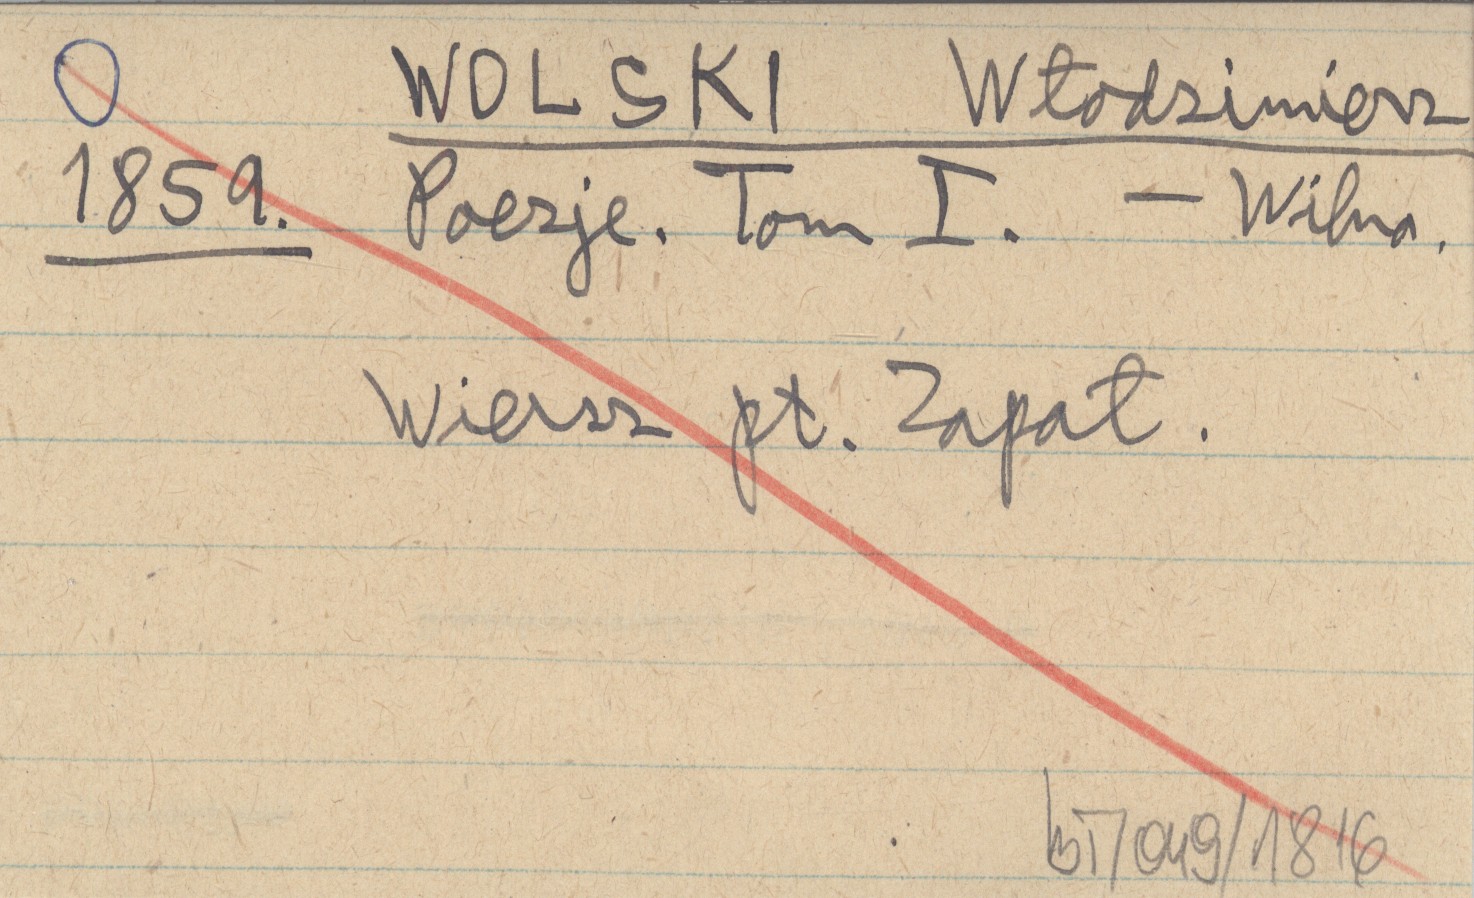 WOLSKI Włodzimierz
1859. Poezje. Tom I. — Wilno.
Wiersz pt. Zapał.